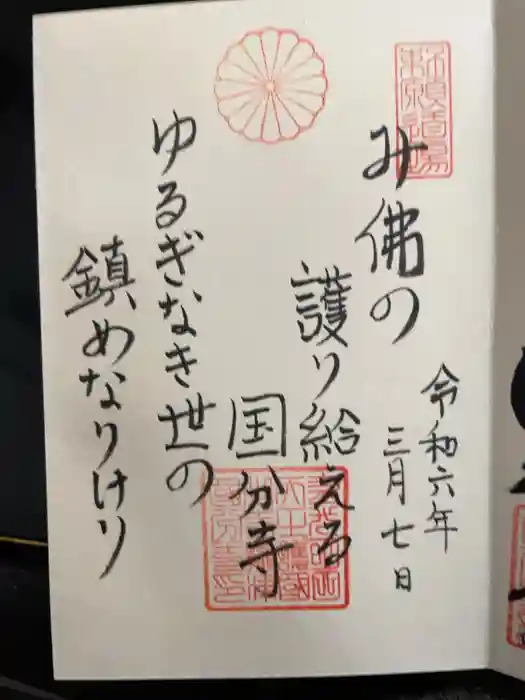 み佛の
護り給える
国分寺
ゆるぎなき世の
鎮めなりけり
令和六年
三月七日